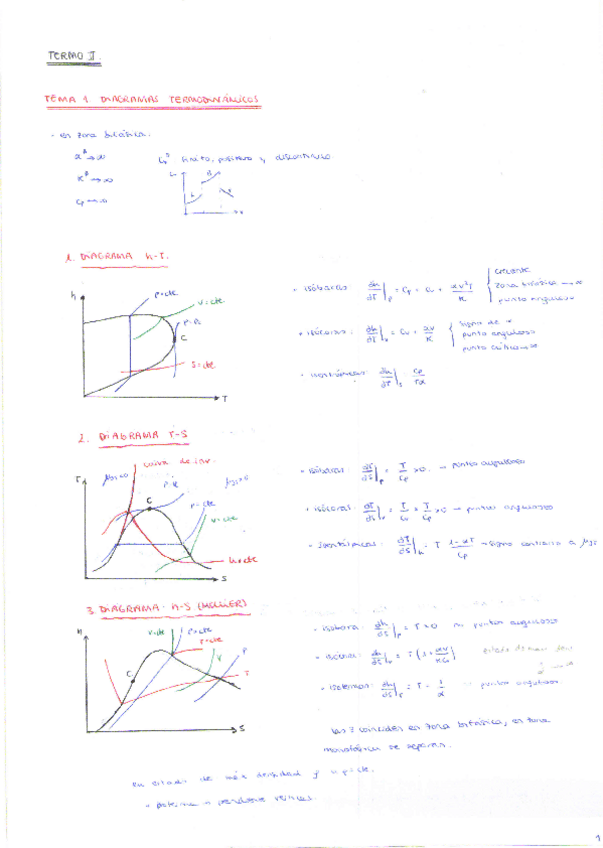 TERMO II.
TEMA 1 DIAGRAMAS TERMODINÁMICOS
- en zona bifásica.
α^B → ∞
K^B → ∞
Cp → ∞
finito, positivo y discontinuo
1. DIAGRAMA h-T.
h
P=cte
v=cte
C
S=cte
T
• isóbaras: ∂h/∂T|p = Cp = Cv + αv²T/K
creciente
zona bifásica → ∞
punto anguloso
• isócoras: ∂h/∂T|v = Cv + αv/K
signo de α
punto anguloso
punto crítico → ∞
• isentrópicas: ∂h/∂T|s Cp/Tα
2. DIAGRAMA T-S
T
curva de inv.
C
P=cte
v=cte
h=cte
S
• isóbaras: ∂T/∂S|p = T/Cp > 0. → puntos angulosos
• isócoras: ∂T/∂S|v = T/Cv > T/Cp > 0 → puntos angulosos
• Isentálpicas: ∂T/∂S|h = T (1-αT)/Cp → signo contrario a μJT
3. DIAGRAMA h-S (MOLLIER)
H
v=cte
P=cte
C
V
P
T
S
• isobara: ∂h/∂S|p = T > 0 puntos anguloso
• isócoras: ∂h/∂S|v = T(1+αv/KCv)
• isotermas: ∂h/∂S|T = T - 1/α puntos angulosos
Las 3 coinciden en zona bifásica, en zona
monofásica se separan.
en estado de máx densidad